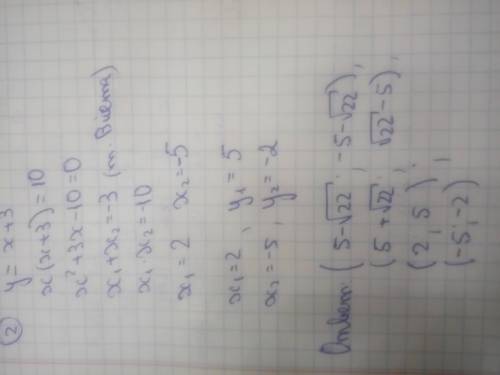 ② y = x+3
x(x+3) = 10
x²+3x-10=0
x₁+x₂=-3 (т. Виета)
x₁·x₂=-10
x₁=2 x₂=-5
x₁=2, y₁=5
x₂=-5, y₂=-2
Ответ: (5-√22; -5-√22),
(5+√22; √22-5),
(2; 5),
(-5;-2)